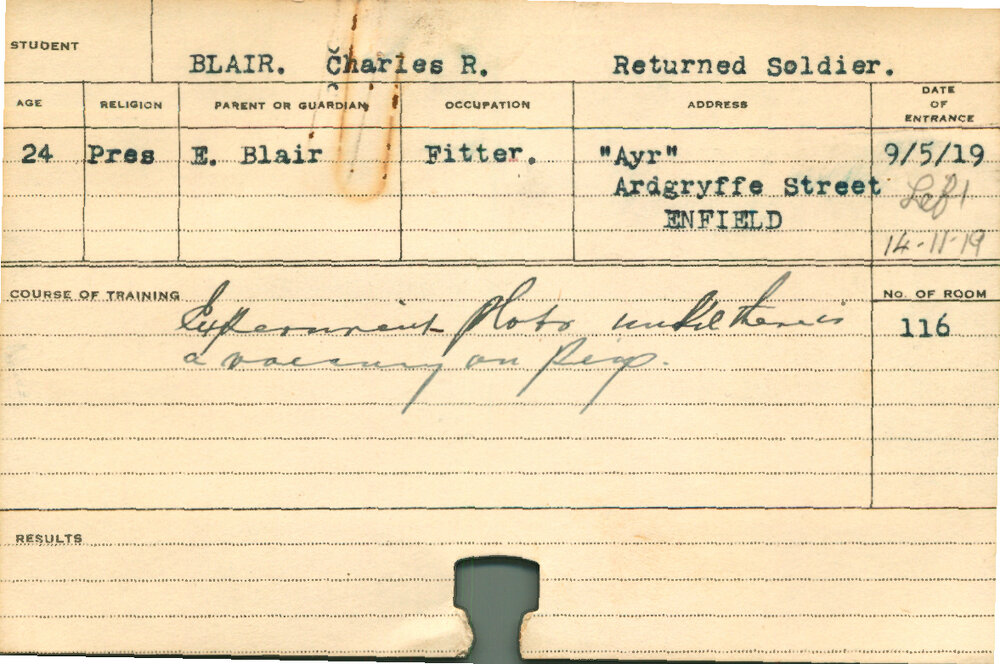 STUDENT
BLAIR. Charles R. Returned Soldier.
AGE RELIGION PARENT OR GUARDIAN OCCUPATION ADDRESS DATE OF ENTRANCE
24 Pres E. Blair Fitter. "Ayr" 9/5/19
Ardgryffe Street Left
ENFIELD 14-11-19
COURSE OF TRAINING No. OF ROOM
Experiment Plots until there is 116
a vacancy on Pigs.
RESULTS